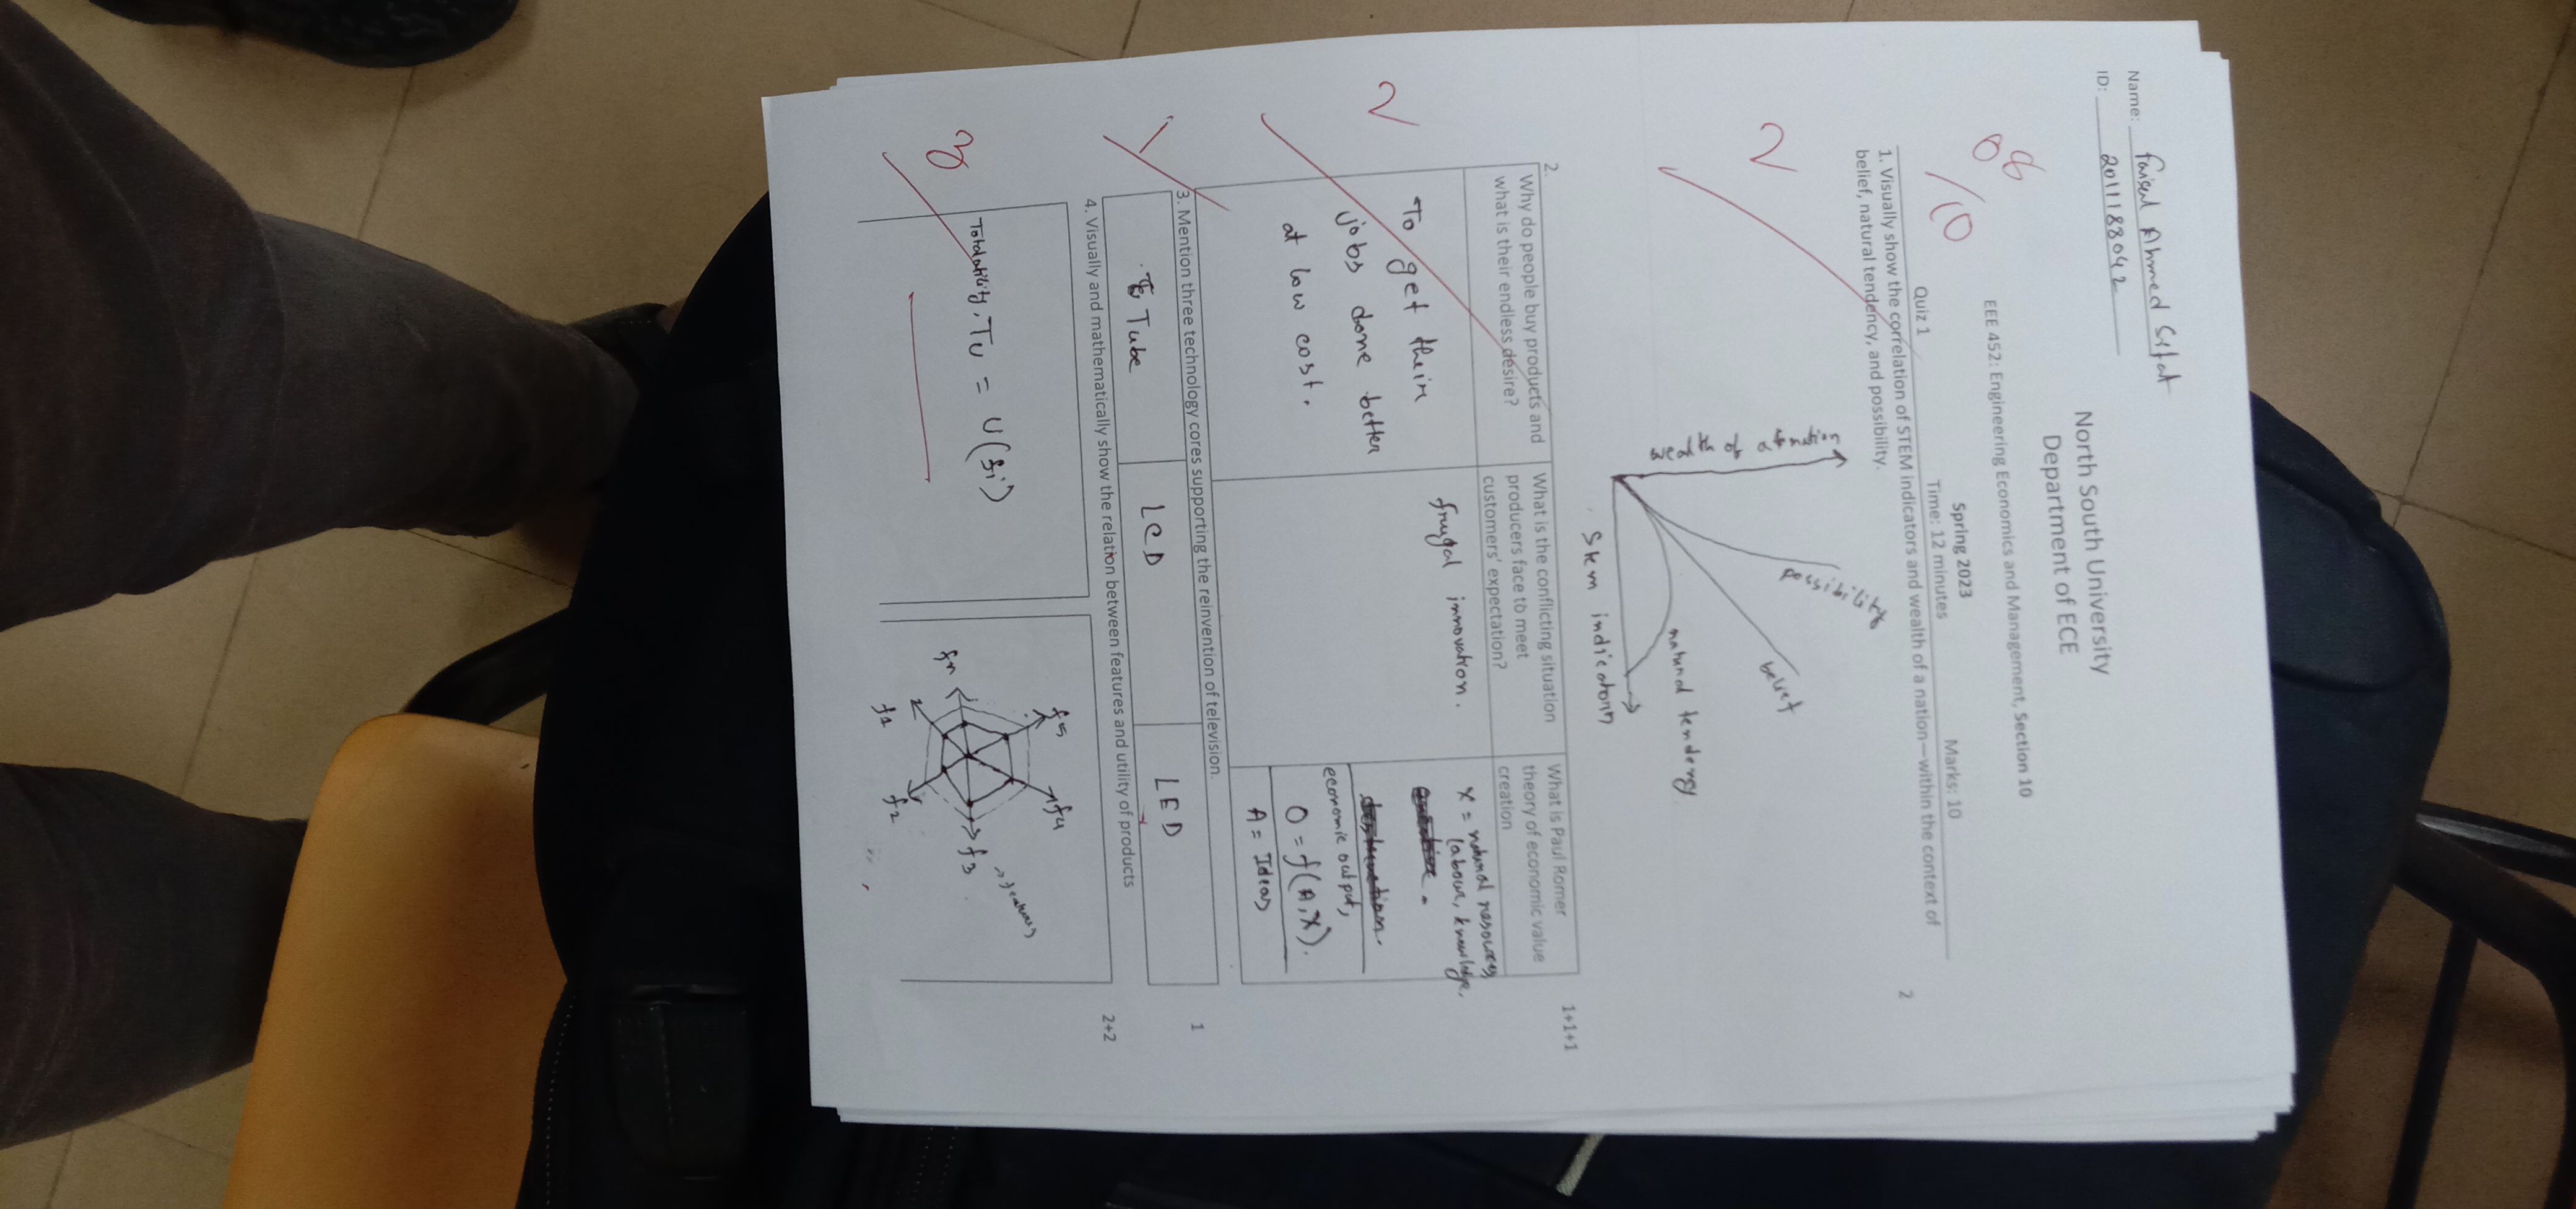 Name: Faisal Ahmed Sifat
ID: 2011188042
North South University
Department of ECE
08
/10
EEE 452: Engineering Economics and Management, Section 10
Spring 2023
Quiz 1 Time: 12 minutes Marks: 10
1. Visually show the correlation of STEM indicators and wealth of a nation—within the context of
belief, natural tendency, and possibility. 2
2
wealth of a nation
possibility
belief
natural tendency
Stem indicators
2. 1+1+1
Why do people buy products and
what is their endless desire?
What is the conflicting situation
producers face to meet
customers' expectation?
What is Paul Romer
theory of economic value
creation
2
To get their
jobs done better
at low cost.
frugal innovation.
X = natural resources
labour, knowledge.
economic output,
O = f(A,X).
A = Ideas
3. Mention three technology cores supporting the reinvention of television. 1
1
Tube LCD LED
4. Visually and mathematically show the relation between features and utility of products 2+2
3
Total utility, TU = U(fi)
f5 f4
f3 → features
fn
f1 f2